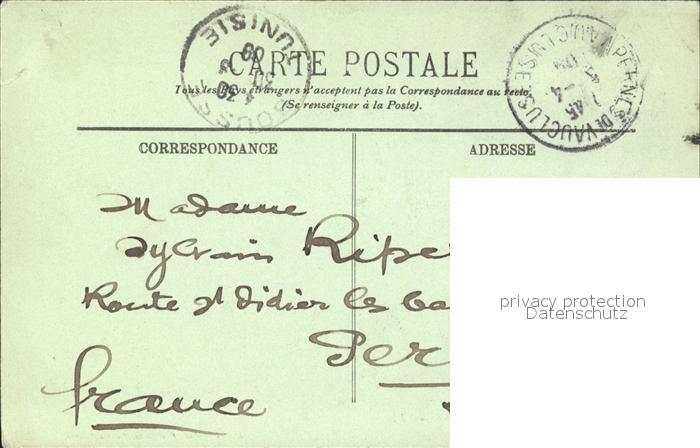 CARTE POSTALE
Tous les Pays étrangers n'acceptent pas la Correspondance au recto
(Se renseigner à la Poste).
TUNISIE
SOUSSE
PERNES DE VAUCLUSE
VAUCLUSE
CORRESPONDANCE
ADRESSE
Madame
Sylvain Ripe
Route St Didier les
Per
France
privacy protection
Datenschutz